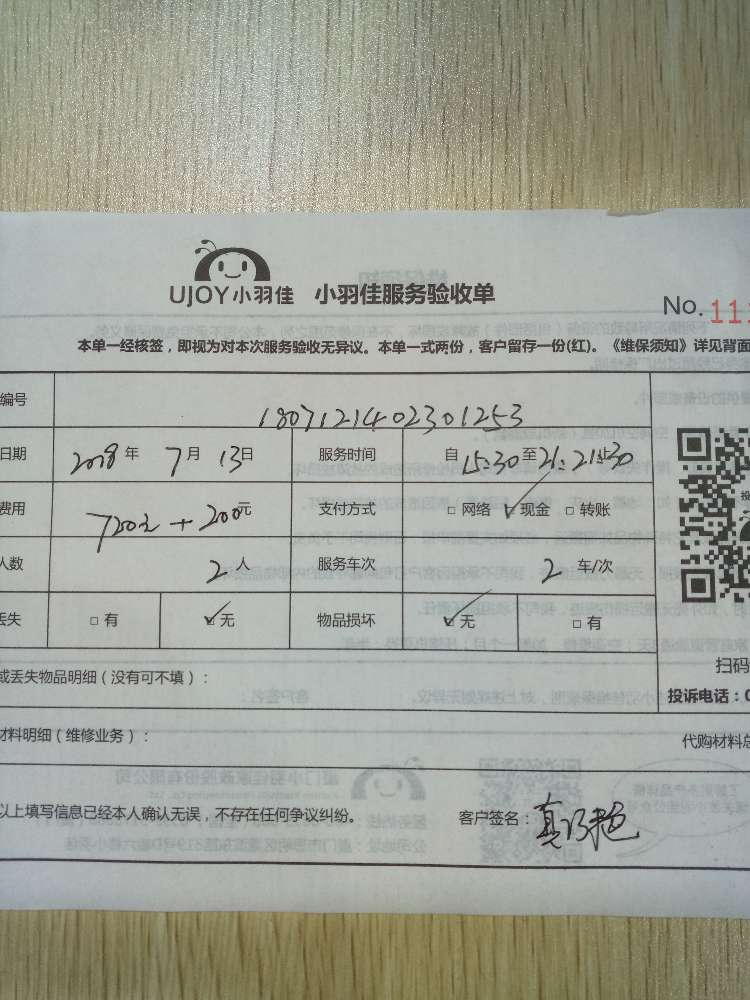 UJOY小羽佳 小羽佳服务验收单
No. 11
本单一经核签，即视为对本次服务验收无异议。本单一式两份，客户留存一份(红)。《维保须知》详见背面
编号 1807121402301253
日期 2018 年 7 月 13日 服务时间 自15:30至21:30
费用 720元 + 200元 支付方式 □ 网络 ✓ 现金 □ 转账
人数 2 人 服务车次 2 车/次
丢失 □ 有 ✓ 无 物品损坏 ✓ 无 □ 有
或丢失物品明细（没有可不填）：
扫码
投诉电话：0
材料明细（维修业务）：
代购材料总
以上填写信息已经本人确认无误，不存在任何争议纠纷。 客户签名：